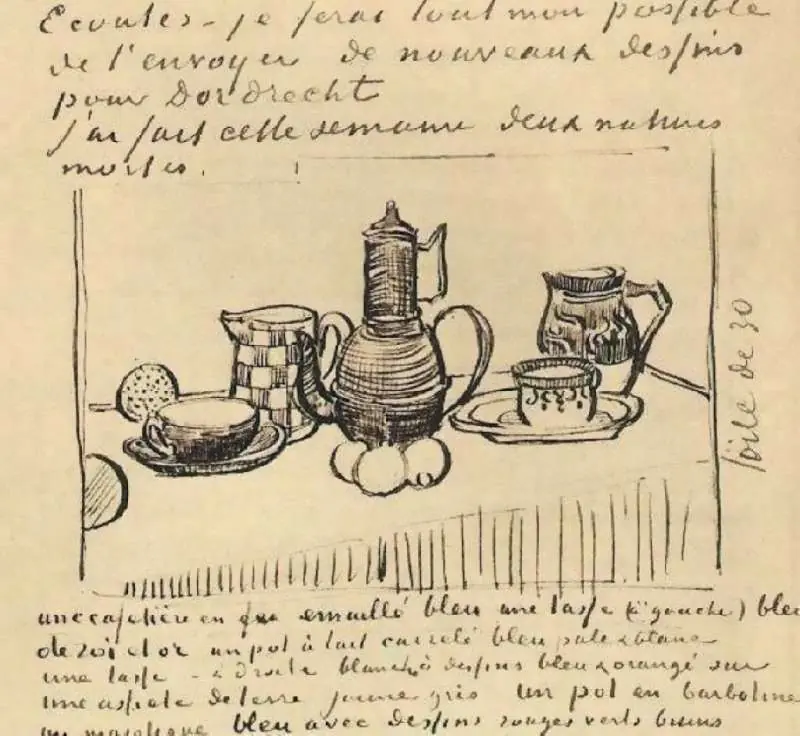 Ecoutes - je ferai tout mon possible
de t'envoyer de nouveaux dessins
pour Dordrecht
J'ai fait cette semaine deux natures
mortes.
Toile de 30
une cafetière en fer emaillé bleu une tasse (à gauche) bleu
de roi et or un pot à lait carrelé bleu pale & blanc
une tasse - à droite blanche à dessins bleu & orangé sur
une assiette de terre jaune gris un pot en barbotine
ou majolique bleu avec dessins rouges verts bruns